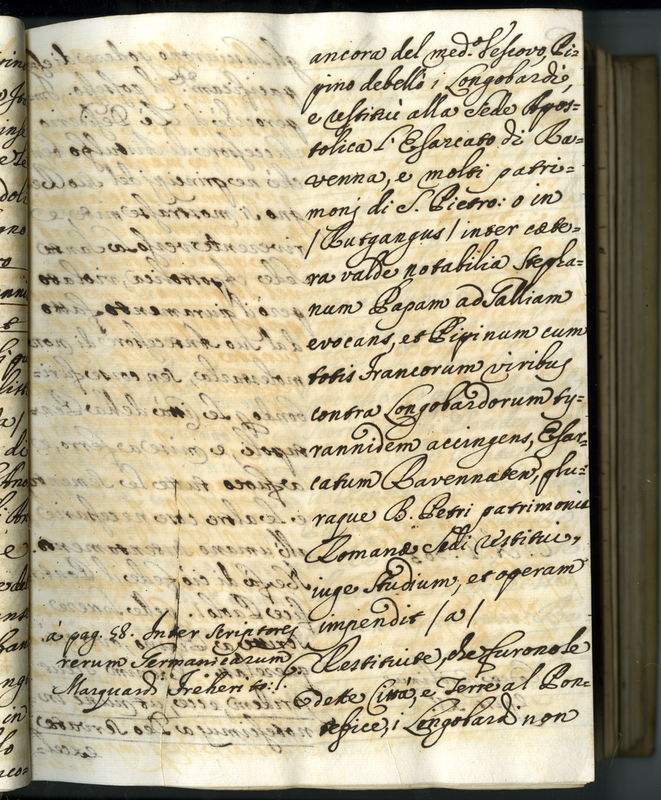 ancora del med.º Vescovo, Pi=
pino debellò i Longobardi,
e restituì alla Sede Apos=
tolica l'Esarcato di Ra=
venna, e molti patri=
monj di S. Pietro: o in
/Rutgangus/ inter cæte=
ra valde notabilia Stepha=
num Papam ad Galliam
evocans, et Pipinum cum
totis Francorum viribus
contra Longobardorum ty=
rannidem accingens, Esar=
catum Ravennaten, plu=
raque B. Petri patrimonia
Romanæ Sedi restitui,
iuge studium, et operam
impendit /a/
Restituite, che furono le
dette Città, e Terre al Pon=
tefice, i Longobardi non
à pag. 58. Inter Scriptores
rerum Germanicarum
Marquardi Freheri to: 1.